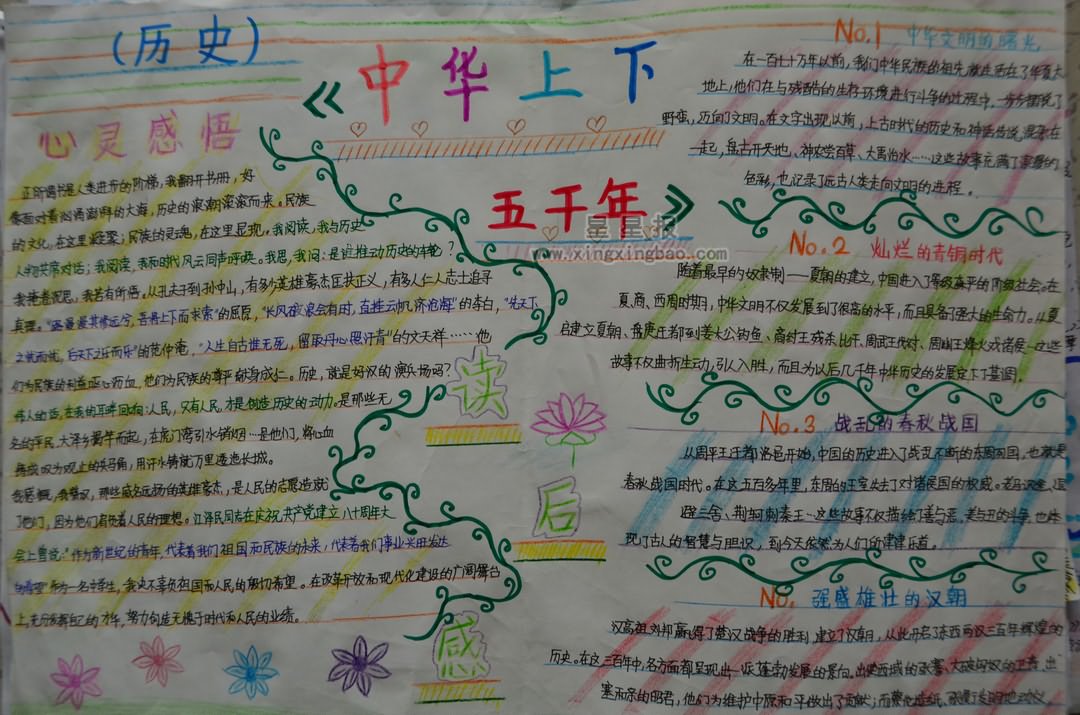 (历史)
《中华上下
五千年》
星星报
www.xingxingbao.com
心灵感悟
正所谓书是人类进步的阶梯,我翻开书册,好
像面对着汹涌澎湃的大海,历史的浪潮滚滚而来。民族
的文化,在这里凝聚;民族的灵魂,在这里显现。我阅读,我与历史
人物共席对话;我阅读,我和时代风云同声呼唤。我思,我问:是谁推动历史的车轮?
我掩卷沉思,我若有所悟。从孔夫子到孙中山,有多少英雄豪杰匡扶正义,有多少仁人志士追寻
真理。"路漫漫其修远兮,吾将上下而求索"的屈原,"长风破浪会有时,直挂云帆济沧海"的李白,"先天下
之忧而忧,后天下之乐而乐"的范仲淹,"人生自古谁无死,留取丹心照汗青"的文天祥……他
们为民族的利益呕心沥血,他们为民族的尊严献身成仁。历史,就是好汉的演兵场吗?
伟人的话,在我的耳畔回响:人民,只有人民,才是创造历史的动力。是那些无
名的平民,大泽乡揭竿而起,在虎门湾引水销烟…是他们,将心血
铸成叹为观止的兵马俑,用汗水铸就万里逶迤长城。
我感慨,我赞叹,那些威名远扬的英雄豪杰,是人民的志愿造就
了他们,因为他们肩负着人民的理想。江泽民同志在庆祝共产党建立八十周年大
会上曾说:"作为新世纪的青年,代表着我们祖国和民族的未来,代表着我们事业兴旺发达
的希望"作为一名中学生,我决不辜负祖国和人民的殷切希望。在改革开放和现代化建设的广阔舞台
上,充分发挥自己的才华,努力创造无愧于时代和人民的业绩。
读
后
感
No.1 中华文明的曙光
在一百七十万年以前,我们中华民族的祖先就生活在了华夏大
地上,他们在与残酷的生存环境进行斗争的过程中,一步步摆脱了
野蛮,迈向了文明。在文字出现以前,上古时代的历史和神话传说混杂在
一起,盘古开天地,神农尝百草、大禹治水……这些故事充满了
色彩,也记录了远古人类走向文明的进程。
No.2 灿烂的青铜时代
随着最早的奴隶制——夏朝的建立,中国进入了等级森严的阶级社会。在
夏、商、西周时期,中华文明不仅发展到了很高的水平,而且具备了强大的生命力。从夏
启建立夏朝、盘庚迁都到姜太公钓鱼、商纣王残杀比干、周武王伐纣、周幽王烽火戏诸侯…这些
故事不仅曲折生动,引人入胜,而且为以后几千年中华历史的发展定下了基调。
No.3 战乱的春秋战国
从周平王迁都洛邑开始,中国的历史进入了战乱不断的东周列国,也就是
春秋战国时代。在这五百多年里,东周的王室失去了对诸侯国的权威。老马识途、退
避三舍、荆轲刺秦王…这些故事不仅描绘了善与恶、美与丑的斗争,也体
现了古人的智慧与胆识,到今天依然为人们所津津乐道。
No. 强盛雄壮的汉朝
汉高祖刘邦赢得了楚汉战争的胜利,建立了汉朝,从此开启了东西两汉三百年辉煌的
历史。在这三百年中,各方面都呈现出一派蓬勃发展的景向。出使西域的张骞、大破匈奴的卫青、出
塞和亲的昭君,他们为维护中原和平做出了贡献;而蔡伦造纸、张衡发明地动仪,